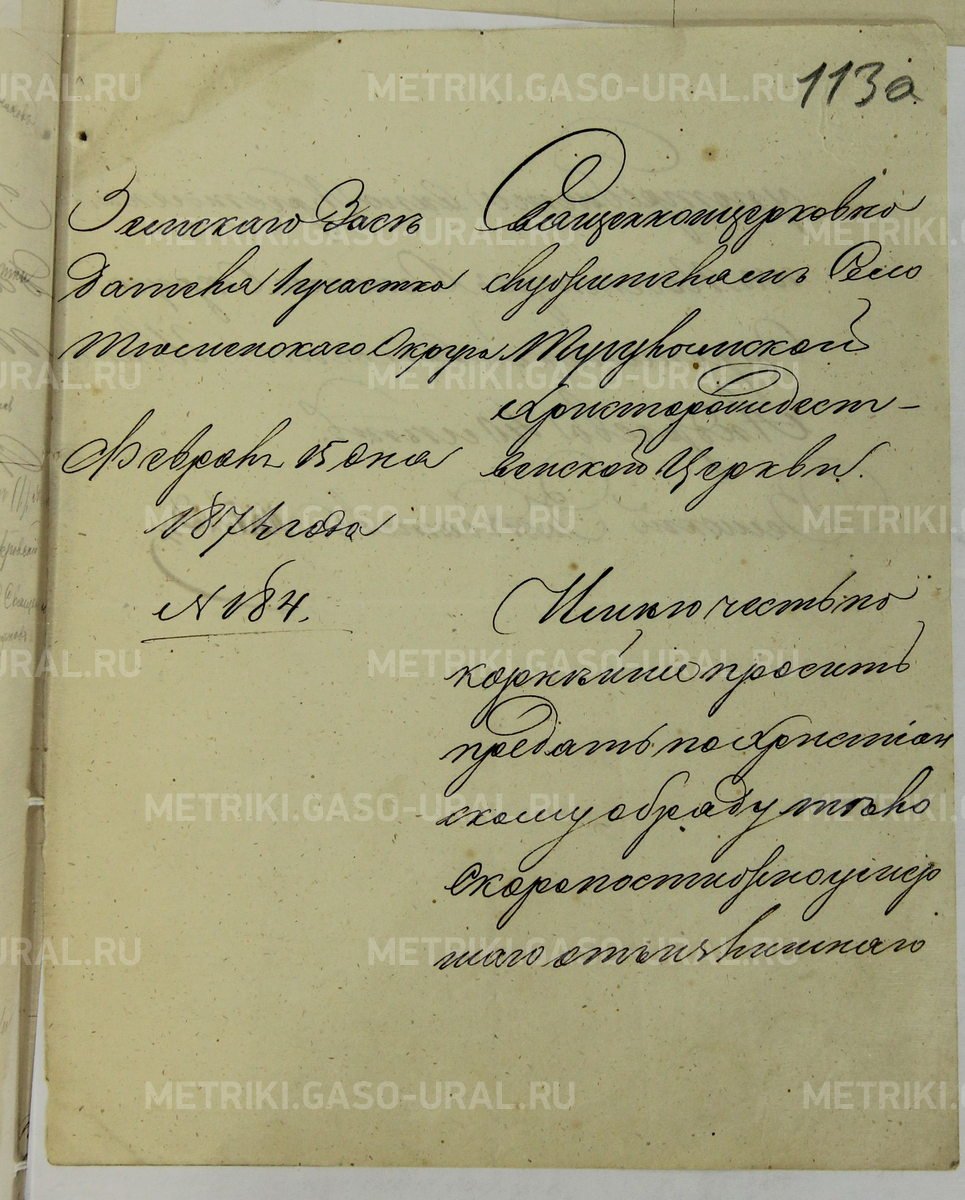 113а
Земскаго Засѣ
дателя 1 участка
Тюменскаго Округа
Февраля 15 дня
1874 года
№ 184.
Священноцерковно
служителямъ Село
Тугулымской
Христорождест-
венской Церкви.
Имѣю честь по
корнѣйше просить
предать по христіан
скому обряду тѣло
скоропостижно умер
шаго отъ излишняго
METRIKI.GASO-URAL.RU